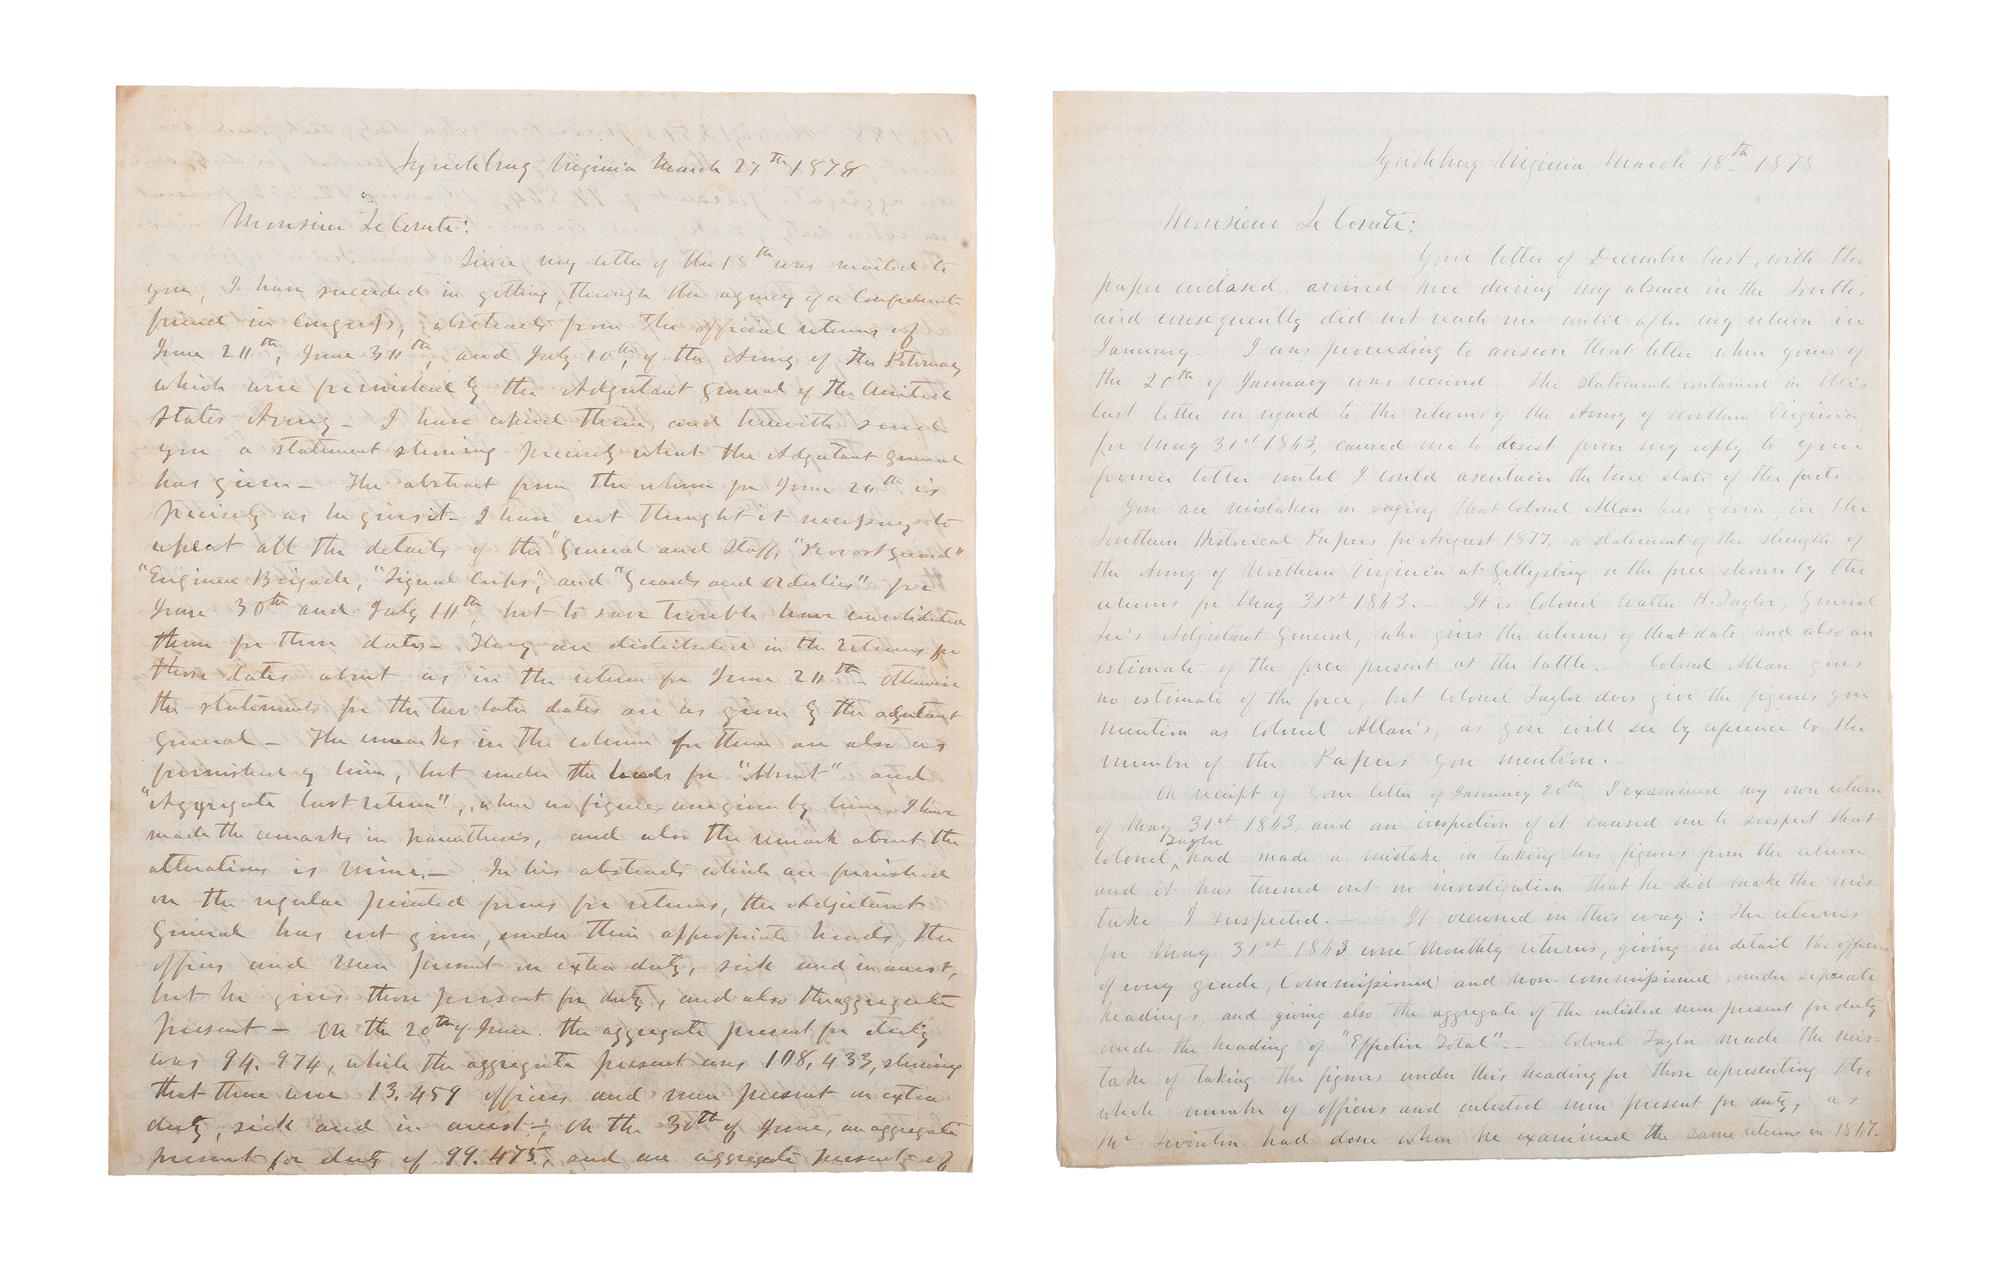 Lynchburg Virginia March 27th 1878
Monsieur Le Comte:
Since my letter of the 18th was mailed to
you, I have succeeded in getting, through the agency of a Confederate
friend in Congress, abstracts from the official returns of
June 20th, June 30th, and July 10th, of the Army of the Potomac
which were furnished by the Adjutant General of the United
States Army – I have copied them, and herewith send
you a statement showing precisely what the Adjutant General
has given – The abstract from the return for June 20th is
precisely as he gives it – I have not thought it necessary to
repeat all the details of the "General and Staff," "Provost Guard"
"Engineer Brigade," "Signal Corps", and "Guards and Orderlies" for
June 30th and July 10th, but to save trouble have consolidated
them for those dates – They are distributed in the returns for
those dates about as in the return for June 20th – Otherwise
the statements for the two later dates are as given by the adjutant
general – The remarks in the column for them are also as
furnished by him, but under the heads for "Absent" and
"Aggregate last return", where no figures are given by him, I have
made the remarks in parenthesis, and also the remark about the
alterations is mine. – In his abstracts which are furnished
on the regular printed forms for returns, the Adjutant
General has not given, under their appropriate heads, the
officers and men present on extra duty, sick and in arrest,
but he gives those present for duty, and also the aggregate
present – On the 20th of June the aggregate present for duty
was 94.974, while the aggregate present was 108,433, showing
that there were 13.459 officers and men present on extra
duty, sick and in arrest –, On the 30th of June, an aggregate
present for duty of 99.475, and an aggregate present of
Lynchburg Virginia, March 18th 1878
Monsieur Le Comte:
Your letter of December last, with the
paper enclosed, arrived here during my absence in the South,
and consequently did not reach me until after my return in
January – I was proceeding to answer that letter when yours of
the 20th of January was received – The statements contained in this
last letter in regard to the returns of the Army of Northern Virginia
for May 31st 1863, caused me to desist from my reply to your
former letter until I could ascertain the true state of the facts –
You are mistaken in saying that Colonel Allan has given, in the
Southern Historical Papers for August 1877, a statement of the strength of
the Army of Northern Virginia at Gettysburg, or the force shown by the
returns for May 31st 1863. – It is Colonel Walter H. Taylor, General
Lee's Adjutant General, who gives the returns of that date, and also an
estimate of the force present at the battle. – Colonel Allan gives
no estimate of the force, but Colonel Taylor does give the figures you
mention as Colonel Allan's, as you will see by reference to the
number of the Papers you mention.
On receipt of your letter of January 20th, I examined my own return
of May 31st 1863, and an inspection of it caused me to suspect that
Colonel Taylor had made a mistake in taking his figures from the return,
and it has turned out on investigation that he did make the mis-
take I suspected. – It occurred in this way: The returns
for May 31st 1863 were Monthly returns, giving in detail the officers
of every grade, Commissioned and non-commissioned, under separate
headings, and giving also the aggregate of the enlisted men present for duty
under the heading of "Effective Total". – Colonel Taylor made the mis-
take of taking the figures under this heading for those representing the
whole number of officers and enlisted men present for duty, as
Mr Swinton had done when he examined the same returns in 1867.